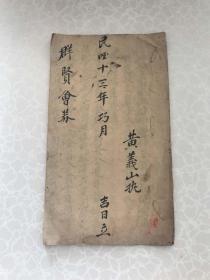 黃義山執
民国十三年巧月 吉日立
群賢會募